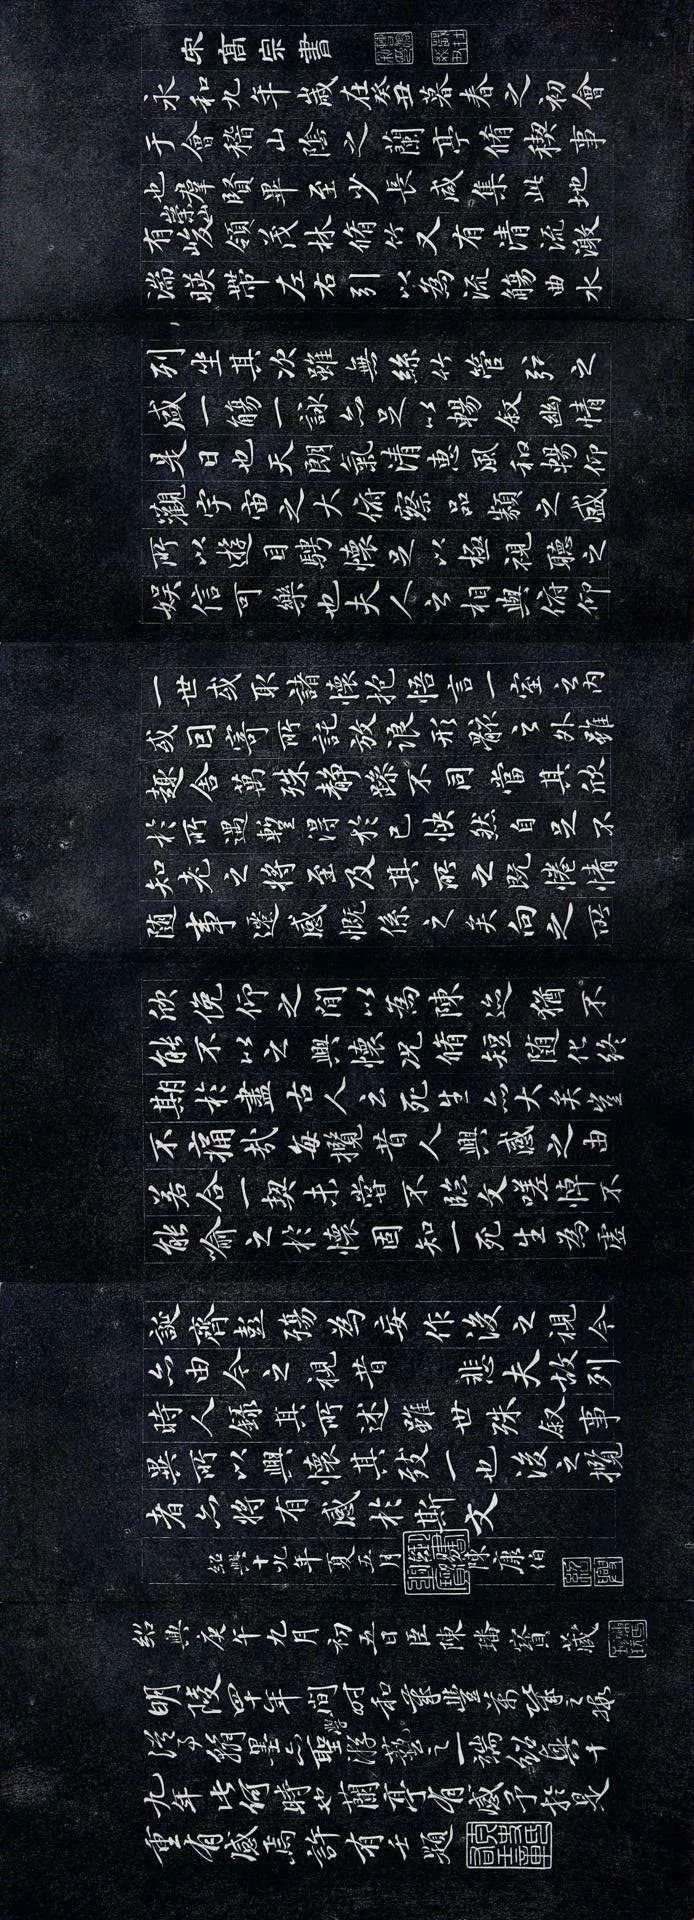 宋高宗書
永和九年歲在癸丑暮春之初會
于會稽山陰之蘭亭脩稧事
也羣賢畢至少長咸集此地
有崇山峻領茂林脩竹又有清流激
湍暎帶左右引以為流觴曲水
列坐其次雖無絲竹管弦之
盛一觴一詠亦足以暢敘幽情
是日也天朗氣清惠風和暢仰
觀宇宙之大俯察品類之盛
所以遊目騁懷足以極視聽之
娛信可樂也夫人之相與俯仰
一世或取諸懷抱悟言一室之內
或因寄所託放浪形骸之外雖
趣舍萬殊靜躁不同當其欣
於所遇暫得於己怏然自足不
知老之將至及其所之既惓情
隨事遷感慨係之矣向之所
欣俛仰之間以為陳迹猶不
能不以之興懷況脩短隨化終
期於盡古人云死生亦大矣豈
不痛哉每攬昔人興感之由
若合一契未嘗不臨文嗟悼不
能喻之於懷固知一死生為虛
誕齊彭殤為妄作後之視今
亦由今之視昔 悲夫故列
時人錄其所述雖世殊敘事
異所以興懷其致一也後之攬
者亦將有感於斯文
紹興十九年夏五月 陳康伯
紹興庚午九月初五日臣陳璠寶藏
陵四十年間時和歲豐萬幾之暇
從事翰墨亦聖學游藝之一端紹興十
九年此何時也蘭亭有感予於是
重有感焉許有壬題